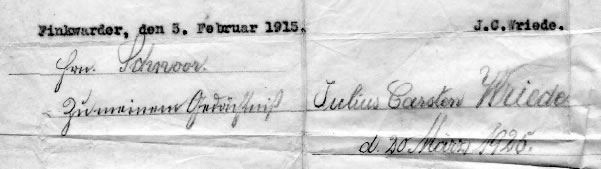 Finkwarder, den 3. Februar 1915. J.C.Wriede.
Hrn. Schnoor.
Zu meinem Gedächtniß Julius Carsten Wriede
d. 20 März 1925.